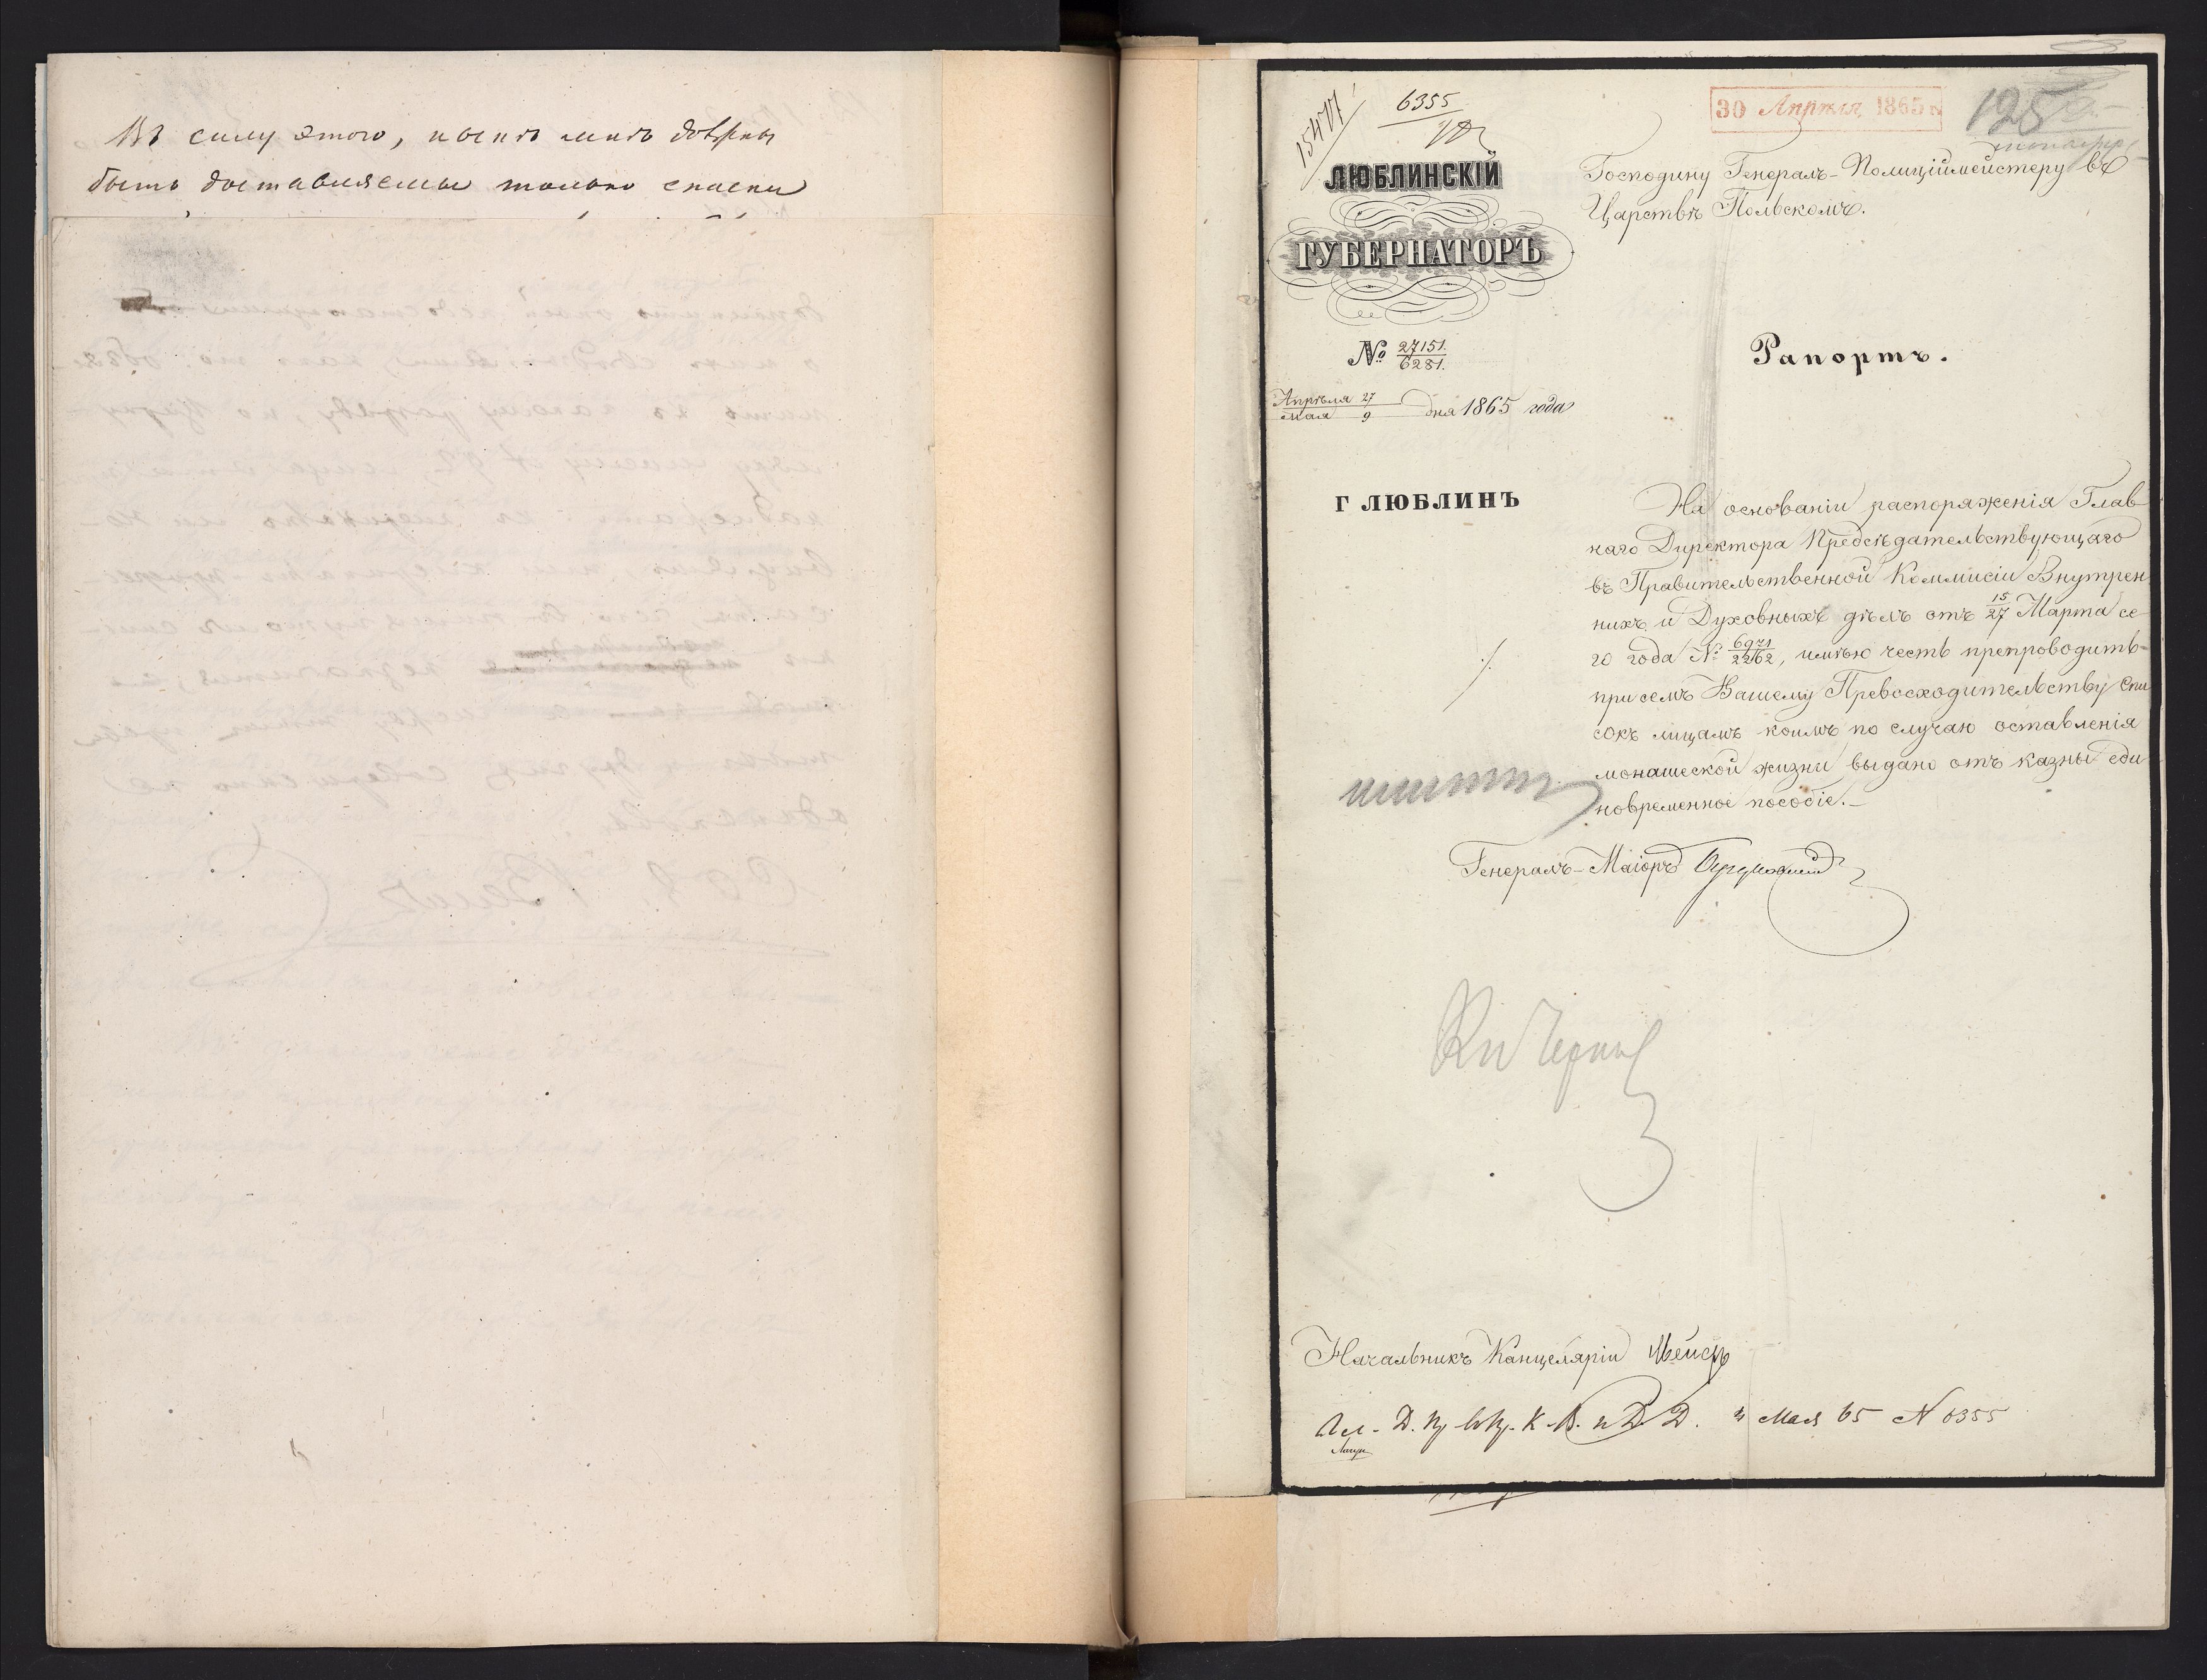 Въ силу этого, нынѣ мнѣ должны
быть доставляемы только списки
15477
6355
30 Апрѣля 1865 г.
125
ЛЮБЛИНСКІЙ
ГУБЕРНАТОРЪ
№ 27151. / 6281.
Апрѣля 27 / Мая 9 дня 1865 года
Г ЛЮБЛИНЪ
Господину Генералъ-Полиціймейстеру въ
Царствѣ Польскомъ.
Рапортъ.
На основаніи распоряженія Глав
наго Директора Предсѣдательствующаго
въ Правительственной Коммисіи Внутрен
нихъ и Духовныхъ дѣлъ отъ 15/27 Марта се-
го года № 6971/2262, имѣю честь препроводить
при семъ Вашему Превосходительству Спи
сокъ лицамъ коимъ по случаю оставленія
монашеской жизни выдано отъ казны еди
новременное пособіе.—
Генералъ-Маіоръ
Начальникъ Канцеляріи
К. В. и Д. Д. 4 Мая 65 № 6355